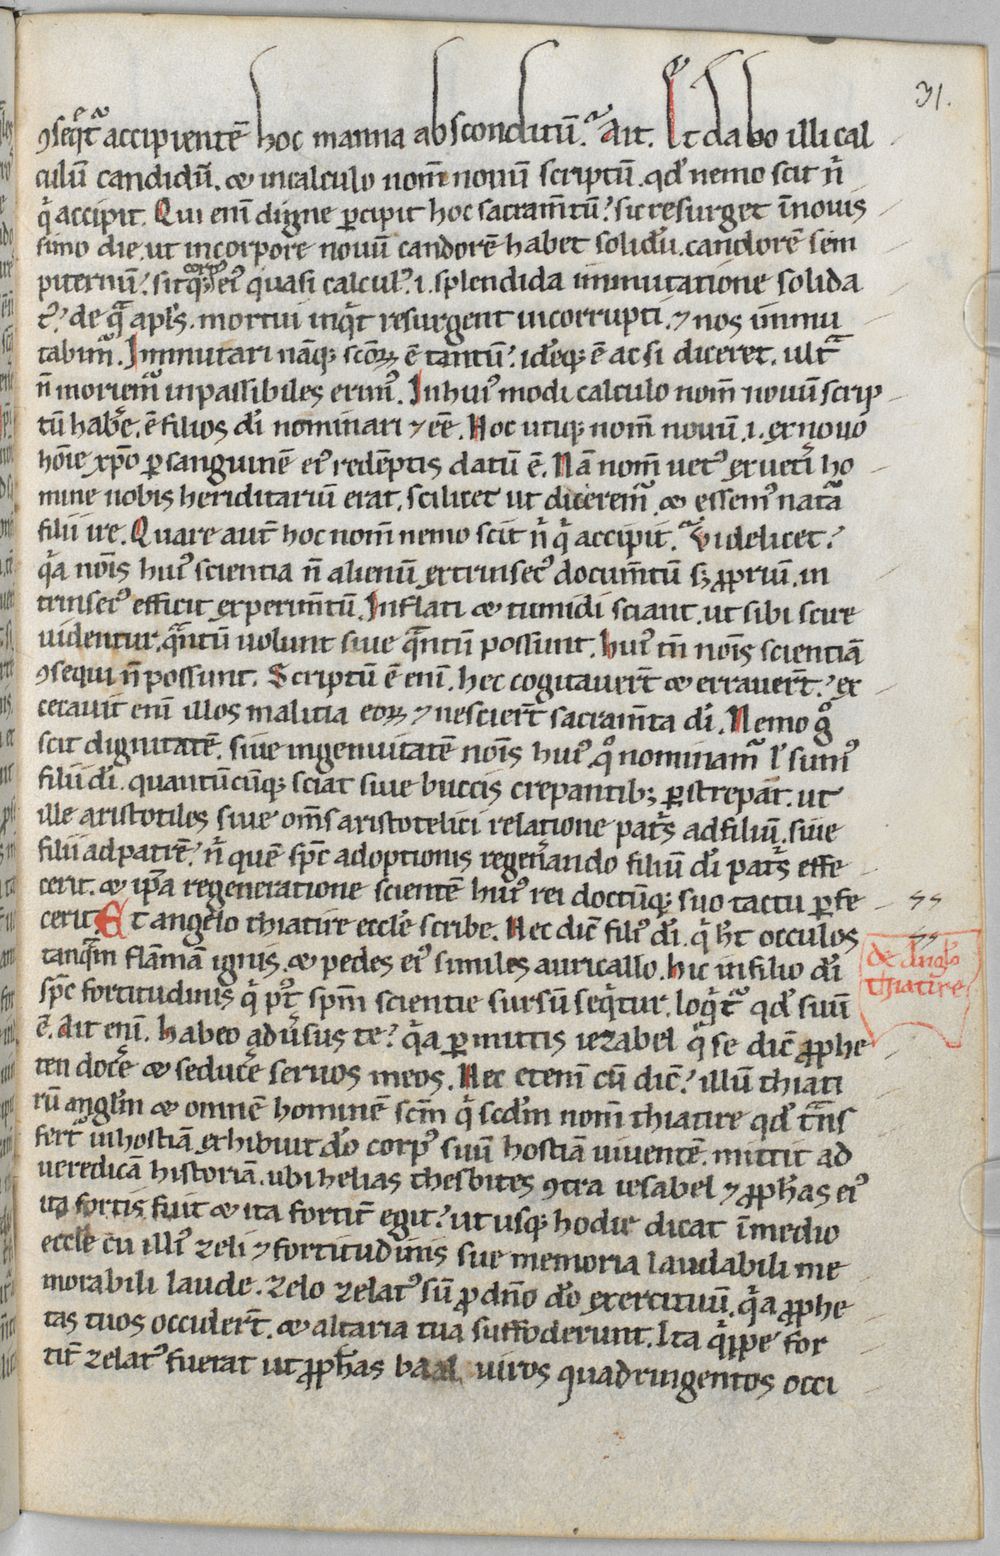 31.
ꝯseq̄t᷑ accipientē hoc manna absconditū. Ait. Et dabo illi cal
culū candidū. & in calculo nom̄ nouū scriptū. qd̕ nemo scit n̄
q̇ accipit. Qui eni᷎ digne ꝑcipit hoc sacram̄tū? sic resurget ī noui
simo die. ut in corpore nouū candorē habet solidū. candorē sem
piternū? sitq; corpꝰ eiꝰ quasi calculꝰ. i. splendida immutatione solida
t᷑? de qua apl̄s. mortui inq̇t resurgent incorrupti. ⁊ nos immu
tabim᷑. Immutari nāq; scōꝝ ē tantū? ideq; ē ac si diceret. ult᷑
n̄ moriem᷑ inpassibiles erimꝰ. In huiꝰmodi calculo nom̄ nouū scrip
tū habe᷑e. ē filios dī nominari ⁊ ēē. Hoc utiq; nom̄ nouū. i. ex nouo
hōie xp̄o ꝑ sanguinē eiꝰ redēptis datū ē. Nā nom̄ uetꝰ ex uet᷑i ho
mine nobis heriditariū erat. scilicet ut dicerem᷑ & essemꝰ nata
filii ire. Quare aut̄ hoc nom̄ nemo scit n̄ q̇ accipit. Videlicet?
q̇a nōis huiꝰ scientia n̄ alienū extrinsecꝰ docum̄tū sꝫ ꝓpriū. in
trinsecꝰ efficit experim̄tū. Inflati & tumidi sciant. ut sibi scire
uidentur. qᷓntū uolunt siue qᷓntū possunt. huiꝰ tn̄ nōis scientiā
ꝯsequi n̄ possunt. Scriptū ē eni᷎. hec cogitauer̄t & errauer̄t? ex
cecauit eni᷎ illos malitia eoꝝ ⁊ nescier̄t sacram̄ta dī. Nemo gͦ
scit dignitatē. siue ingenuitatē nōis huiꝰ. qͦ nominam᷑ l̕ sumꝰ
filii dī. quantūcūq; sciat siue buccis crepantibꝫ ꝑstrepāt. ut
ille aristotiles siue om̄s aristotelici relatione pat᷑s ad filiū. siue
filii ad patrē? n̄ quē sp̄c adoptionis regen᷑ando filiū dī pat᷑s effe
cerit. & ip̄a regeneratione scientē huiꝰ rei doctūq; suo tactu ꝑfe
cerit. Et angelo thiatire eccl̄e scribe. Hec dic̄ filiꝰ dī. q̇ h̄t occulos
tanqᷓm flāmā ignis. & pedes eiꝰ similes auricallo. hic in filio dī
sp̄c fortitudinis q̇ p̄t sp̄m scientie sursū seq̄tur. loq̇t᷑ qd̕ suū
ē. Ait eni᷎. habeo aduᷣsus te? q̇a ꝑmittis iezabel q̄ se dic̄ ꝓphe
ten doce᷑e & seduce᷑e seruos meos. Hec eteni᷎ cū dic̄? illū thiati
rū angl̄m & omnē hominē sc̄m q̇ scd̄m nom̄ thiatire qd̕ t᷑ns
fert᷑ in hostiā exhibuit dō corpꝰ suū hostiā uiuentē. mittit ad
ueredicā historiā. ubi helias thesbites ꝯtra iesabel ⁊ ꝓph̄as eiꝰ
ita fortis fuit & ita fortit̄ egit? ut usq; hodie dicat ī medio
eccl̄e cū illiꝰ zeli ⁊ fortitudinis sue memoria laudabili me
morabili laude. Zelo zelatꝰ sū ꝓ dn̄o dō exercituū. q̇a ꝓphe
tas tuos occider̄t. & altaria tua suffoderunt. Ita q̇ppe for
tit̄ zelatꝰ fuerat ut ꝓph̄as baal uiros quadringentos occi
de Angl̄o
thiatire